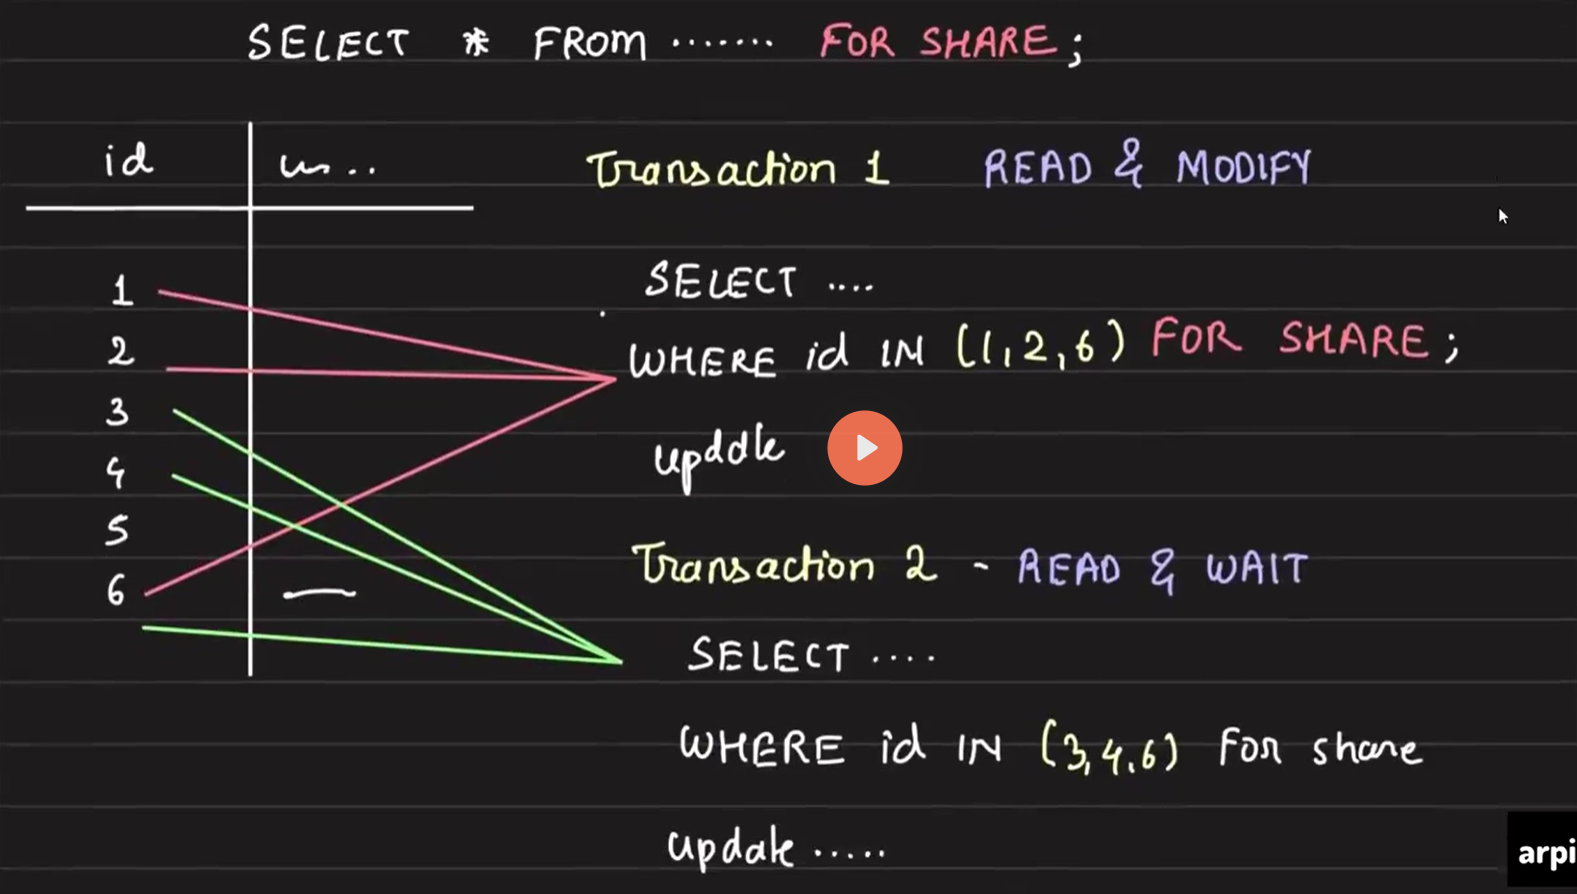 SELECT * FROM ....... FOR SHARE;
id
Transaction 1 READ & MODIFY
1
SELECT ....
2
WHERE id IN (1,2,6) FOR SHARE;
3
4
update
5
6
Transaction 2 - READ & WAIT
SELECT ....
WHERE id IN (3,4,6) For share
update .....
arpi